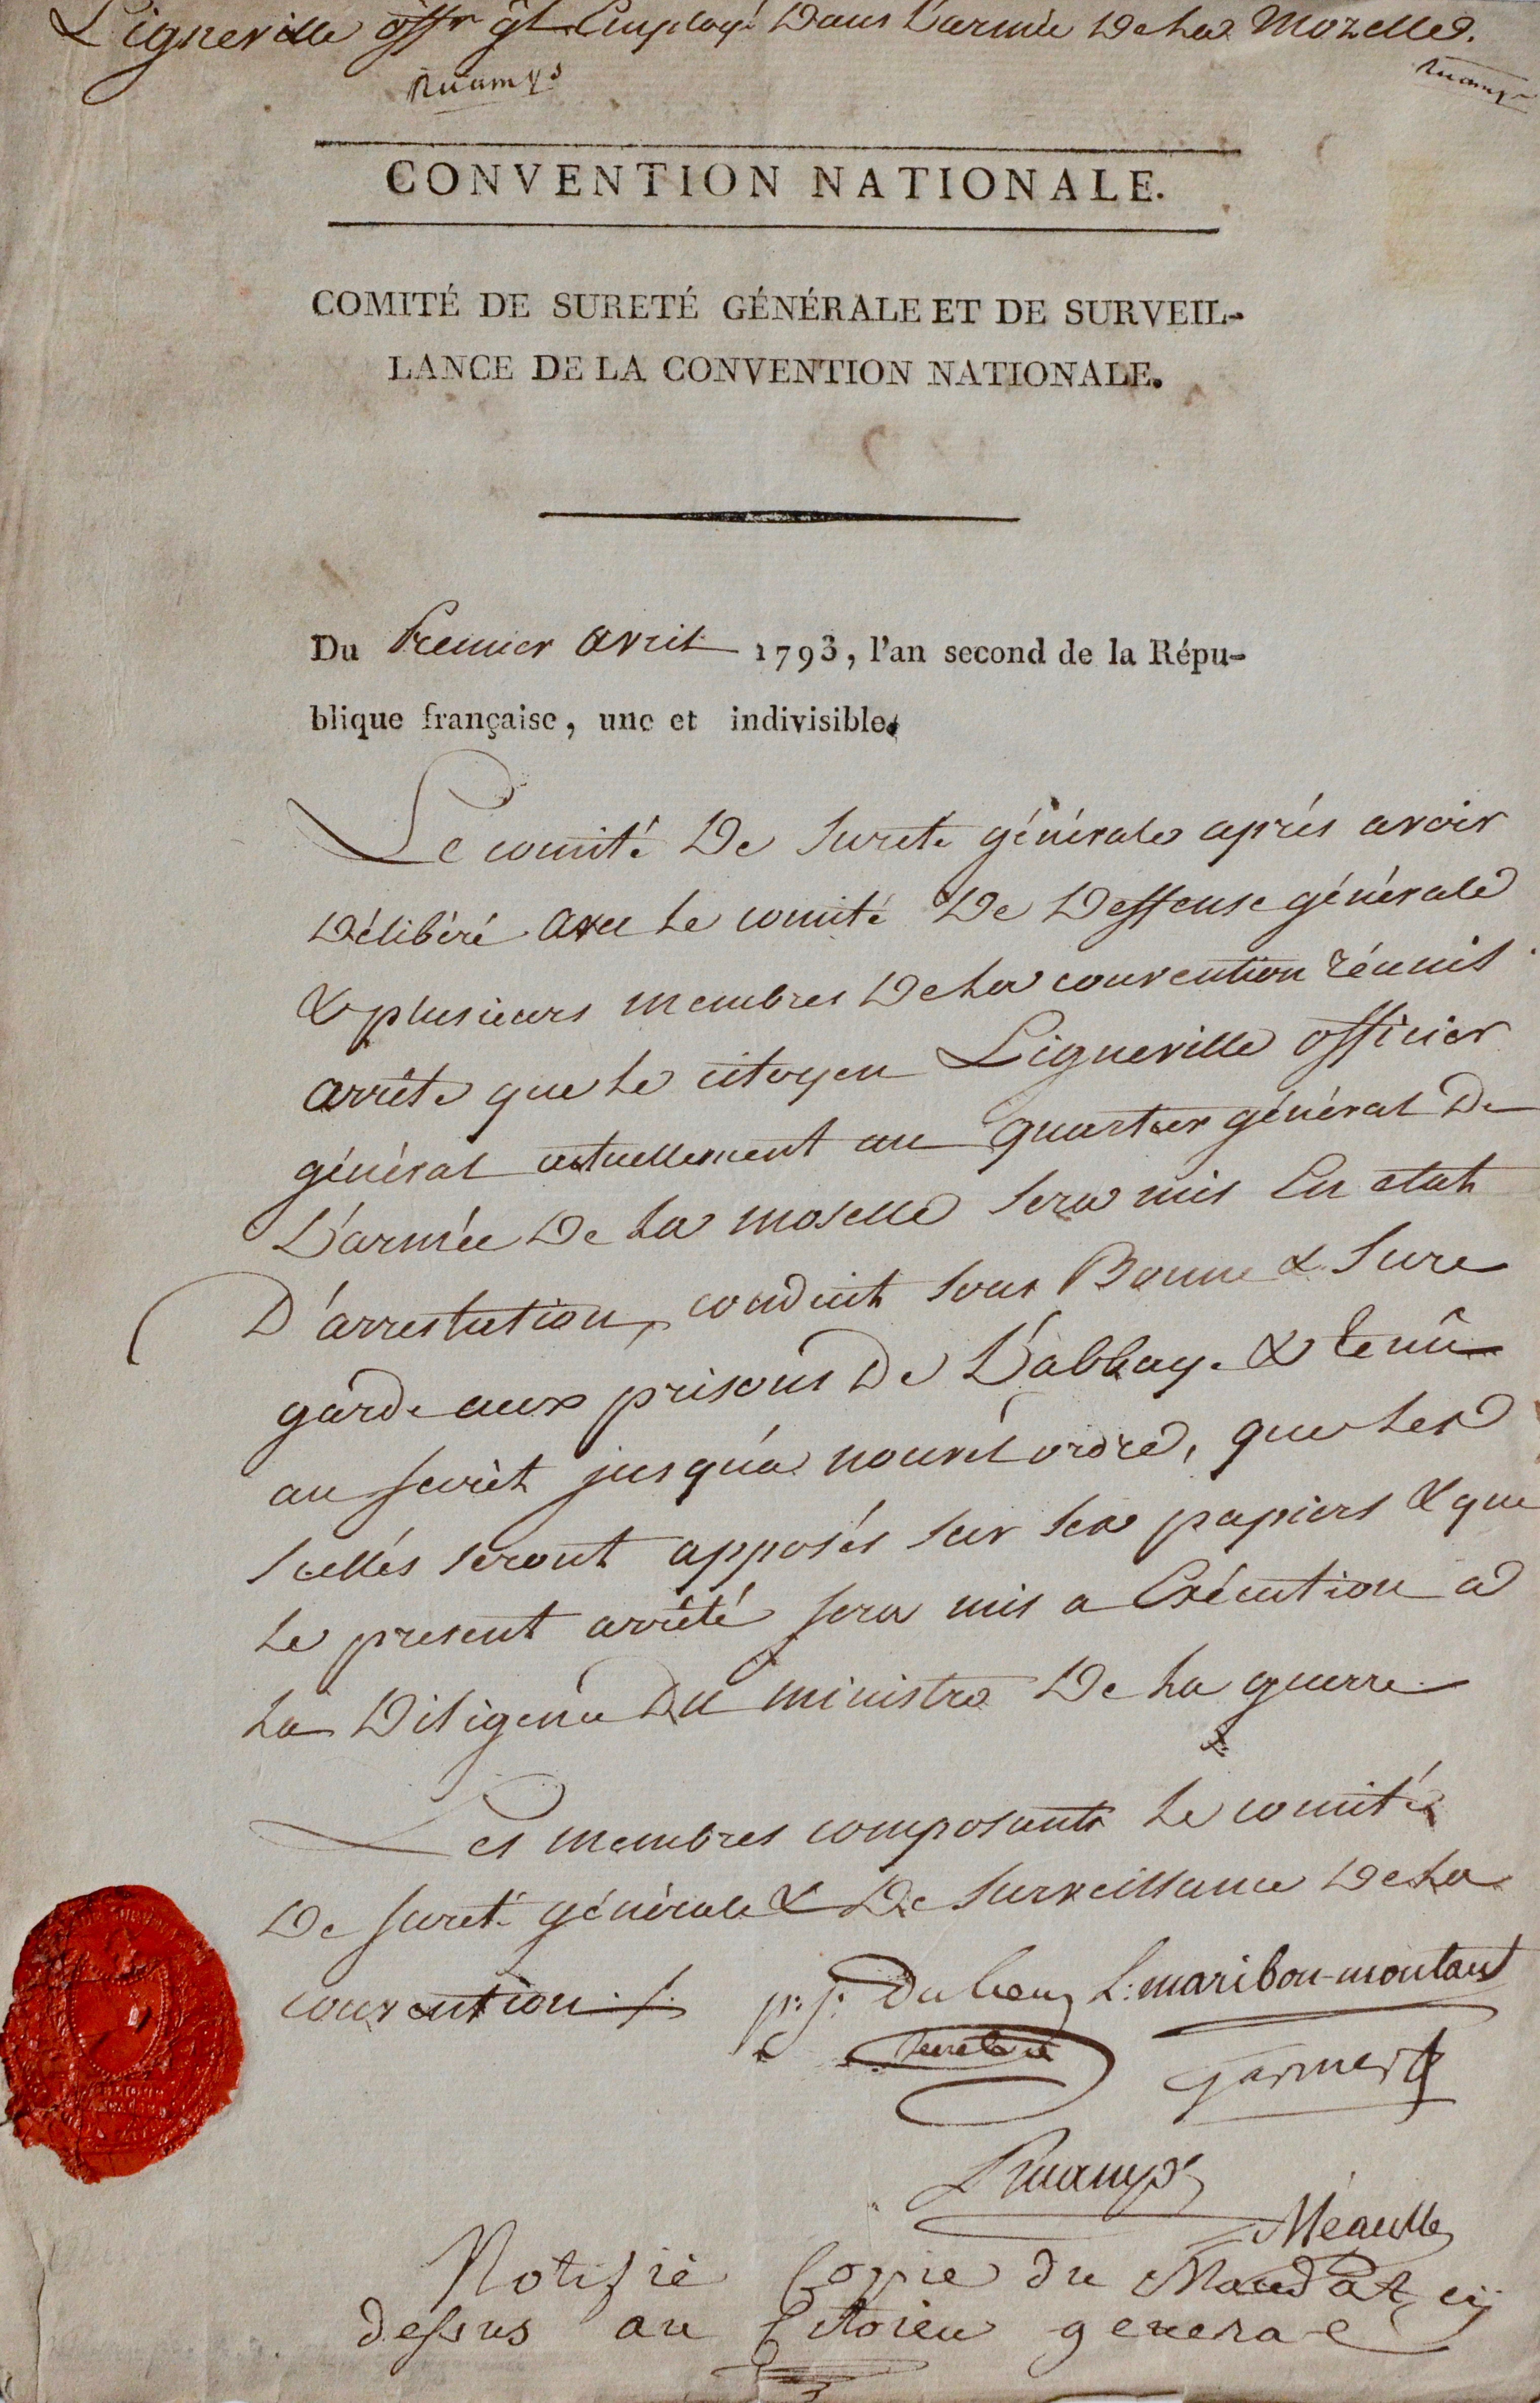 Ligneville offr gl Employé Dans L'armée De La Mozelle.
Ruamps
Ruamps
CONVENTION NATIONALE.
COMITÉ DE SURETÉ GÉNÉRALE ET DE SURVEIL-
LANCE DE LA CONVENTION NATIONALE.
Du Premier Avril 1793, l'an second de la Répu-
blique française, une et indivisible.
Le comité De Sureté générale aprés avoir
Délibéré avec Le comité De Deffense générale
& plusieurs membres De La convention réunis
arrête que Le citoyen Ligneville officier
général actuellement au quartier général De
L'armée De La moselle sera mis En etat
D'arrestation, conduit sous Bonne & Sure
garde aux prisons De L'abbaye & tenû
au secrèt jusqu'a nouvel ordre, que Les
scellés seront apposés sur ses papiers & que
Le present arrêté sera mis a Exécution a
La Diligence Du ministre De La guerre
Les membres composants Le comité
De sureté générale & De Surveillance De La
convention ./.
p. j. Duhem L. maribon-montaut
secretaire
garnier
Ruamps
Méaulle
Notifié Copie du Mandat cy
dessus au Citoien general